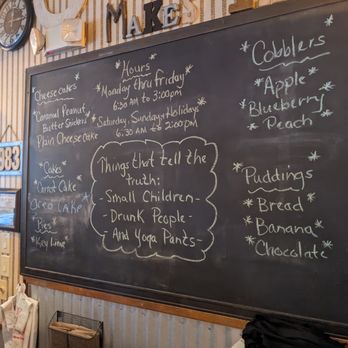 MAKES
383
Cheesecakes
*Caramel Peanut
Butter Snickers*
Plain Cheesecake
*Cakes*
*Carrot Cake*
Oreo Cake
*Pies*
*Key Lime*
*Hours*
Monday thru Friday
6:30 AM to 3:00pm
*Saturday, Sunday & Holidays*
6:30 AM to 2:00pm
Things that tell the
truth:
-Small Children-
-Drunk People-
-And Yoga Pants-
*Cobblers*
*Apple*
*Blueberry*
*Peach*
*Puddings*
*Bread*
*Banana*
*Chocolate*